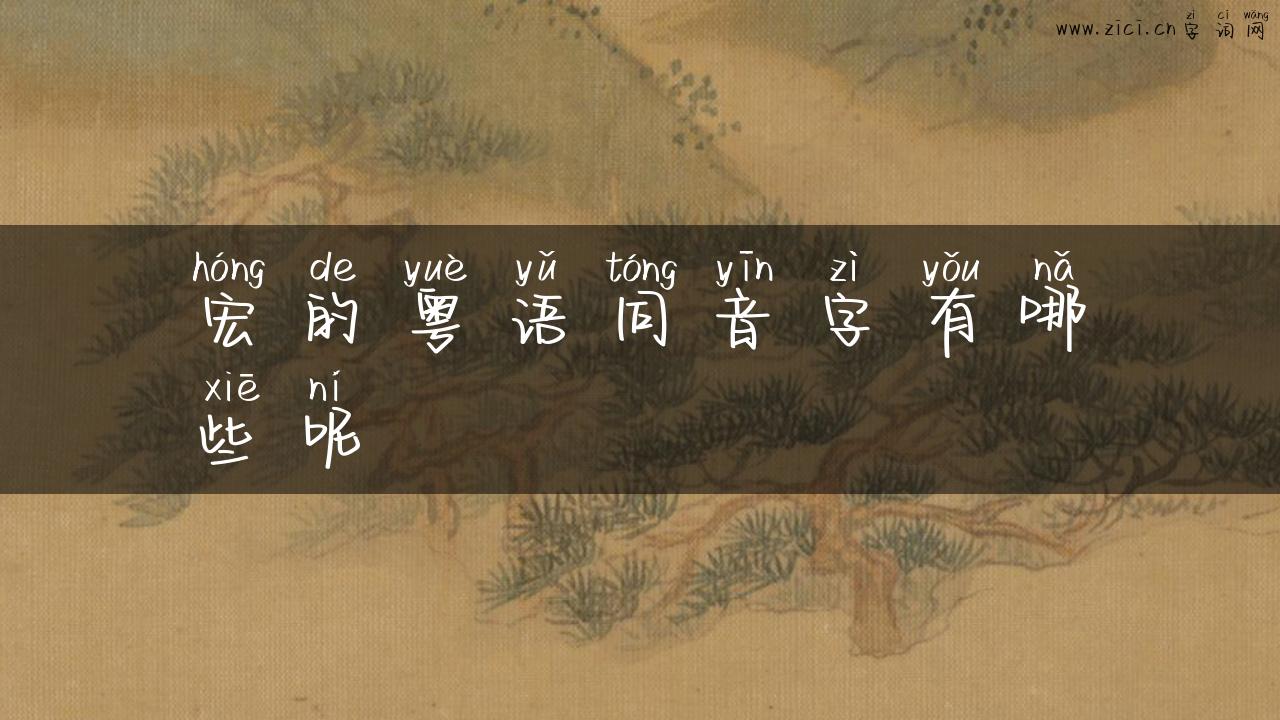 zì cí wǎng
www.zici.cn 字词网
hóng de yuè yǔ tóng yīn zì yǒu nǎ
宏的粤语同音字有哪
xiē ní
些呢